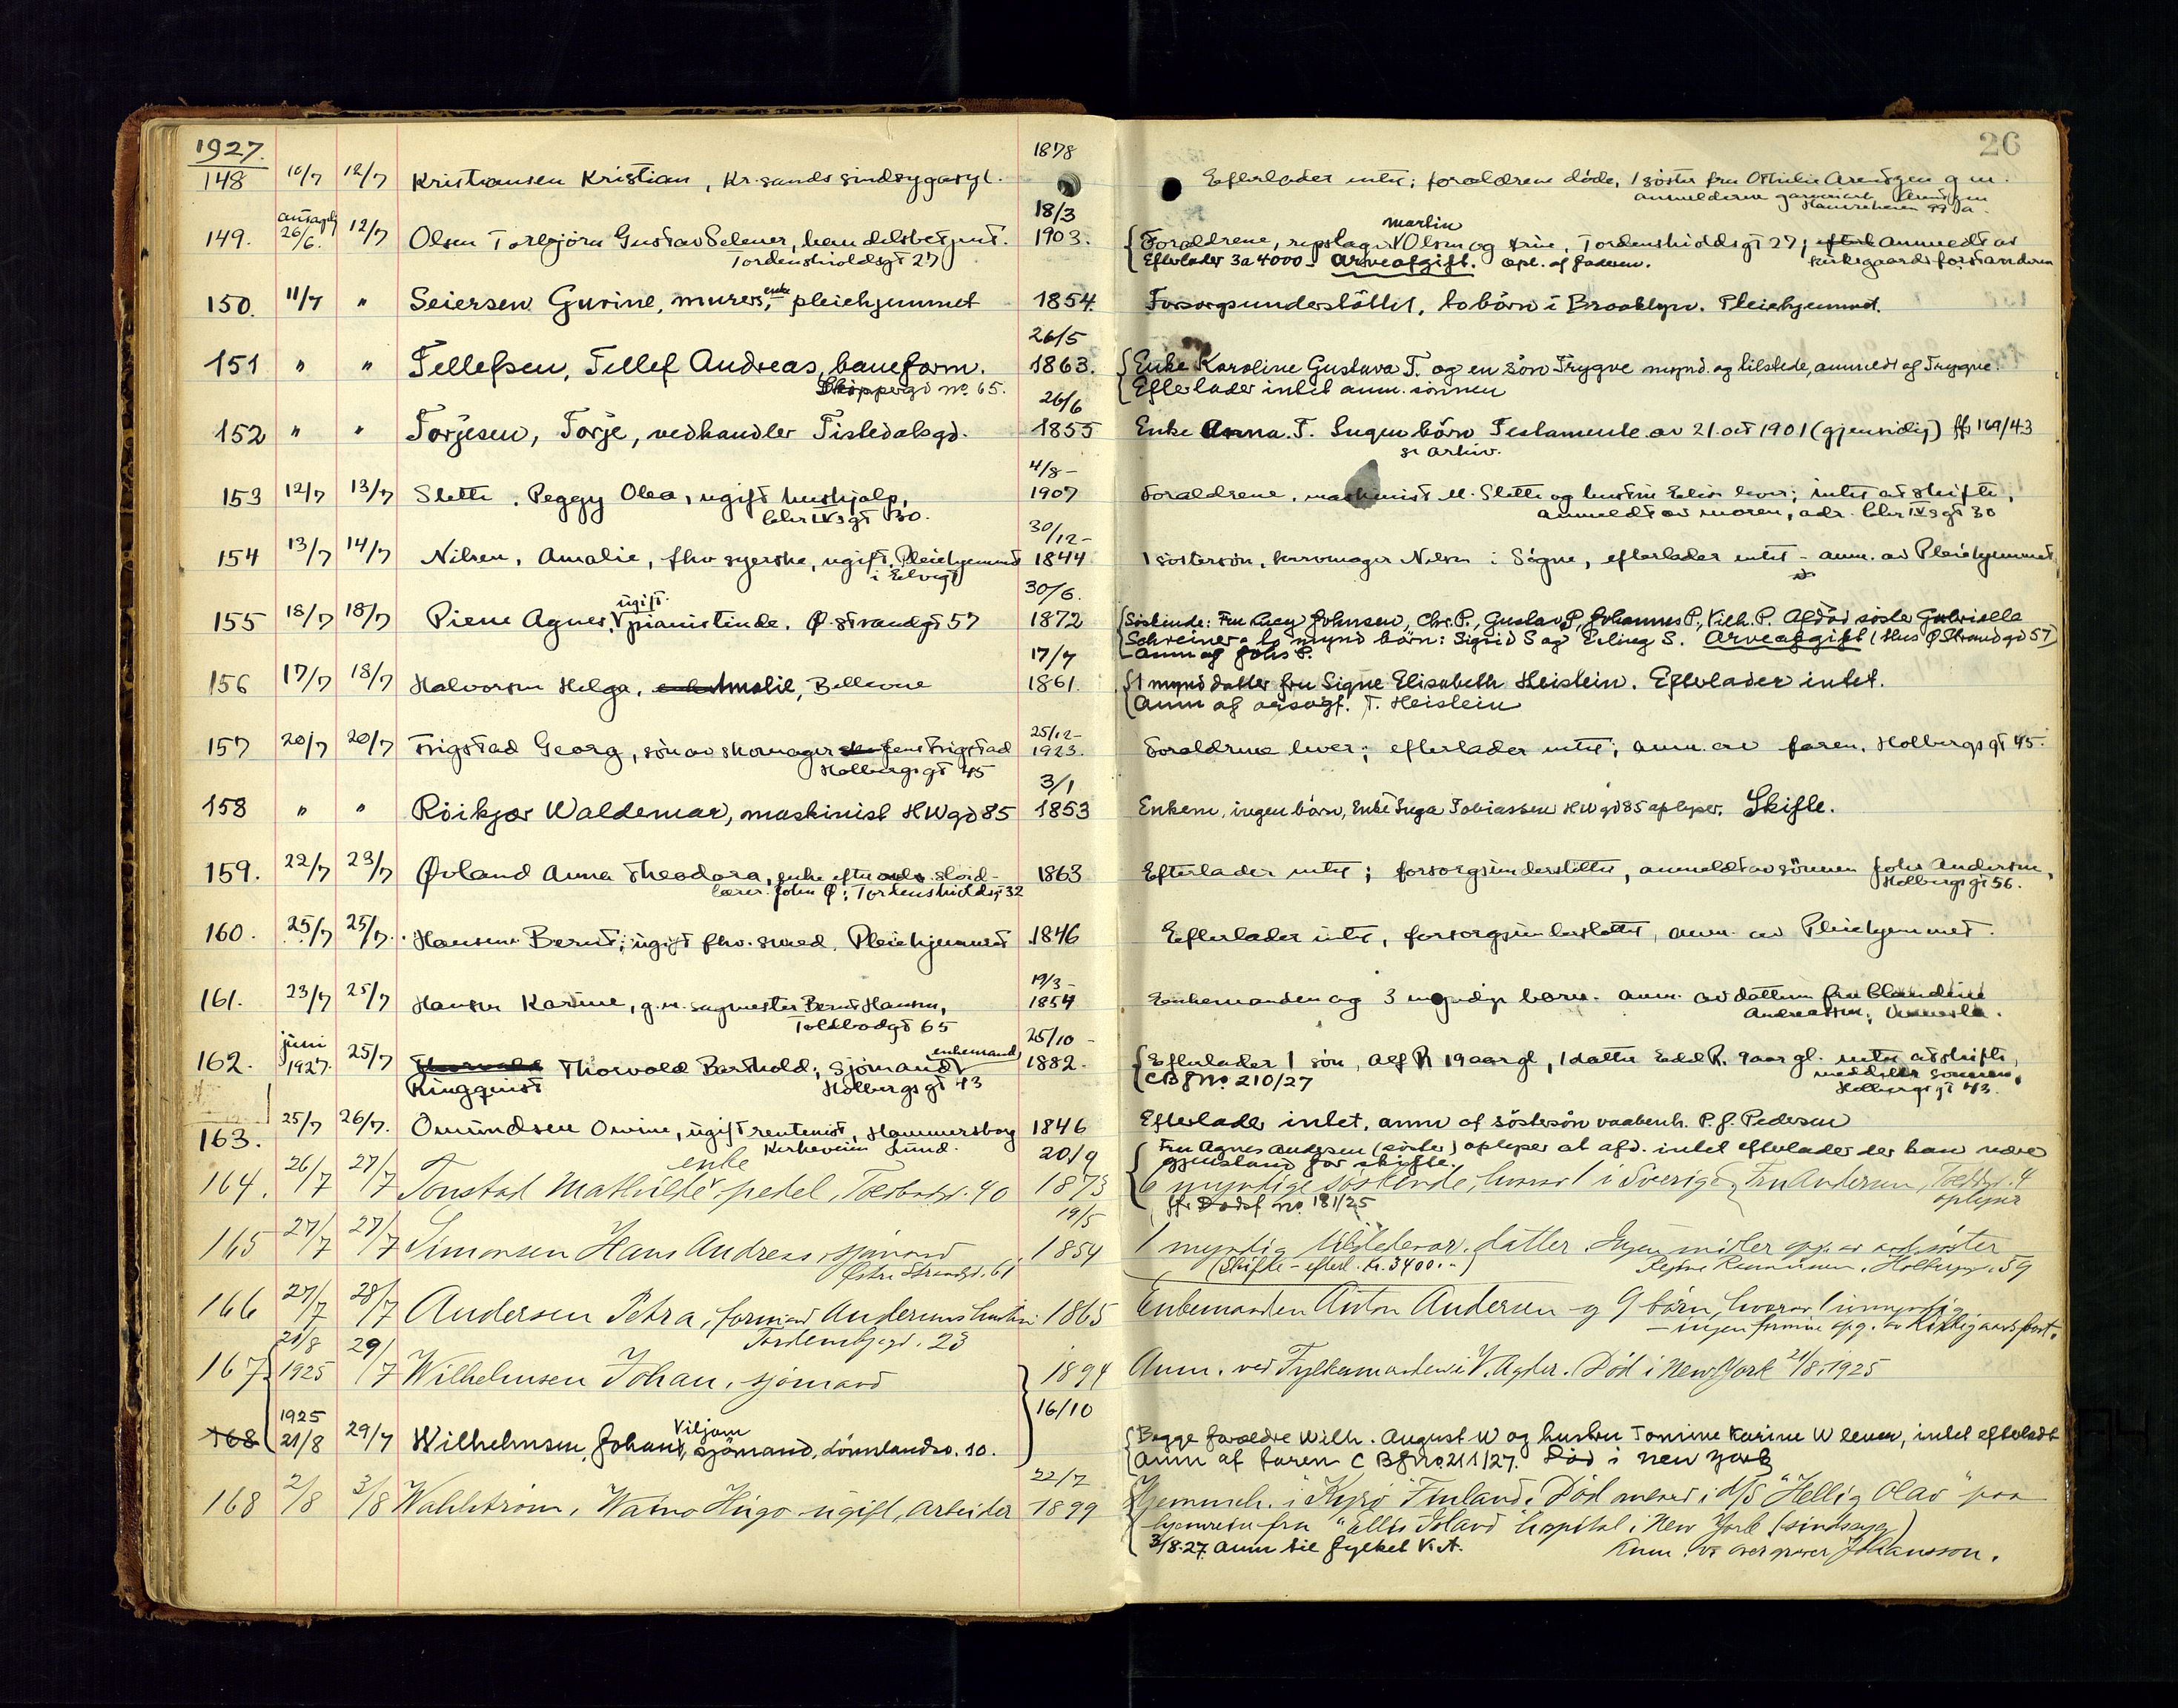 26
1927.
1878
148 10/7 12/7 Kristiansen Kristian, Kr.sands sindsygeasyl. Efterlader intet; forældrene døde, 1 søster fru Othilie g.m.
anmelderne
antagelig 18/3 martin
149. 26/6. 12/7 Olsen Torbjörn Gustav Selmer, handelsbetjent. 1903. Forældrene, repslager Olsen og Trine, Tordenskioldsgt 27; efterl anmeldt av
Tordenskioldsgt 27 Efterlader 3 a 4000 - Arveafgift. Opl. af faderen. kirkegaardsforstanderen
150. 11/7 " Seiersen Gurine, murers enke, pleiehjemmet 1854. Forsorgsunderstöttet, to börn i Brooklyn. Pleiehjemmet.
26/5
151 " " Tellefsen, Tellef Andreas, baneform. 1863. Enke Karoline Gustava T. og en sön Trygve mynd. og tilstede, anmeldt af Trygve.
Skippergd no. 65. Efterlader intet anm. sönnen
26/6
152 " " Torjesen, Torje, vedhandler Tistedalsgd. 1855 Enke Anna T. Ingen börn Testamente av 21. oct 1901 (gjensidig) ff 169/43
se arkiv.
4/8-
153 12/7 13/7 Slette, Peggy Olea, ugift hushjælp, 1907 Forældrene, maskinist M. Slette og hustru lever; intet at skifte,
Chr IVs gt 30. anmeldt av moren, adr. Chr IVs gt 30
30/12-
154 13/7 14/7 Nilsen, Amalie, fhv syerske, ugift, Pleiehjemmet 1844 1 søstersön, Nilsen i Sögne, efterlader intet - anm. av Pleiehjemmet
i Elvegt
ugift. 30/6.
155 18/7 18/7 Piene Agnes, pianistinde. Ø. Strandgt 57 1872 Söskende: Fru Lucy Johnsen, Chr. P., Gustav P, Johannes P., Vilh. P. Afdöd søster Gabrielle
Schreiner - to mynd börn: Sigrid S og Erling S. Arveafgift (Hus Ø Strandgd 57)
17/7 anm af Johs P.
156 17/7 18/7 Halvorsen Helga, Amalie, Bellevue 1861. 1 mynd datter fru Signe Elisabeth Heistein. Efterlader intet.
Anm af T. Heistein
25/12-
157 20/7 20/7 Trigstad Georg, sön av skomager Jens Trigstad 1923. Forældrene lever; efterlader intet; anm. av faren. Holbergsgt 45.
Holbergsgt 45
3/1
158 " " Röikjær Waldemar, maskinist HWgd 85 1853 Enkem, ingen börn, Enke Inga Tobiassen HWgd 85 oplyser. Skifte.
159. 22/7 23/7 Øvland Anna Theodora, enke efter sløid- 1863 Efterlader intet; forsorgsunderstöttet, anmeldt av sönnen John Andersen,
lærer John Ø; Tordenskioldsgt 32 Holbergsgt 56.
160. 25/7 25/7. Hansen Bernt; ugift fhv. smed. Pleiehjemmet 1846 Efterlader intet, forsorgsunderstöttet, anm. av Pleiehjemmet.
19/3-
161. 23/7 25/7 Hansen Karine, g.m. sagmester Bernt Hansen, 1854 Enkemanden og 3 myndige barn. anm. av datteren fru Blandine
Toldbodgt 65 Andreassen,
juni enkemand 25/10-
162. 1927. 25/7 Thorvald Thorvald Barthold, Sjömand 1882. Efterlader 1 sön, Alf R 19 aar gl, 1 datter R. 9 aar gl. intet at skifte,
Ringquist Holbergsgt 43 C B J No. 210/27 meddeler sönnen, Holbergsgt 43.
163. 25/7 26/7. Omundsen Omine, ugift rentenist, Hammersborg 1846 Efterlader intet, anm af söstersön vaabenh. P. J. Pedersen
Kirkeveien Lund.
enke 20/9 Fru Agnes Andersen (söster) oplyser at afd. intet efterlader der kan være
gjenstand for skifte.
164. 26/7 27/7 Tonstad Mathilde pedel, Toldbodgt. 40 1873 6 myndige söskende, hvorav 1 i Sverige, Fru Andersen, Toldbgt. 4
oplyser
ff. Dödsf no. 181/25
19/5
165 27/7 27/7 Simonsen Hans Andreas, sjömand 1854 1 myndig datter. Ingen midler opg. av søster
Østre Strandgt. 61 (Skifte - efterl. kr. 3400.-) Holbergsgt. 59
166 27/7 28/7 Andersen Petra, formand Andersens hustru. 1865 Enkemanden Anton Andersen og 9 börn, hvorav 1 umyndig
Tordenskjgd. 23 - ingen formue opg. av Kirkegaardsforst.
21/8
167 1925 29/7 Wilhelmsen Johan, sjömand 1894 Anm. ved Fylkesmanden i V. Agder. Död i New York 21/8 1925
1925 Viljam 16/10
168 21/8 29/7 Wilhelmsen, Johan, sjömand, 10. Begge forældre Wilh. August W og hustru Tomine Karine W lever, intet efterladt
Anm af faren C B J No 211/27. Död i New York
22/7
168 2/8 3/8 Wahlström, Waino Hugo ugift, arbeider 1899 Hjemmeh. i Kyrö Finland. Död ombord i D/S "Hellig Olav" paa
hjemreise fra "Ellis Island hospital i New York (sindssyg)
3/8.27. Anm til fylket V.A. Anm. Johansson.